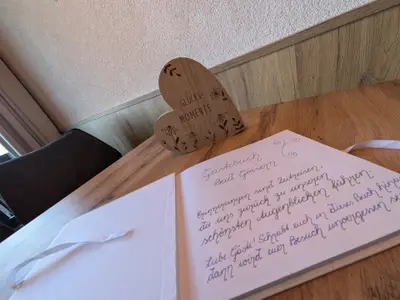 GLÜCKS
MOMENTE
Gästebuch
Erinnerungen sind Zeitreisen,
die uns zurück zu unseren
schönsten Augenblicken führen.
Liebe Gäste! Schreibt euch in dieses Buch
dann wird euer Besuch unvergessen